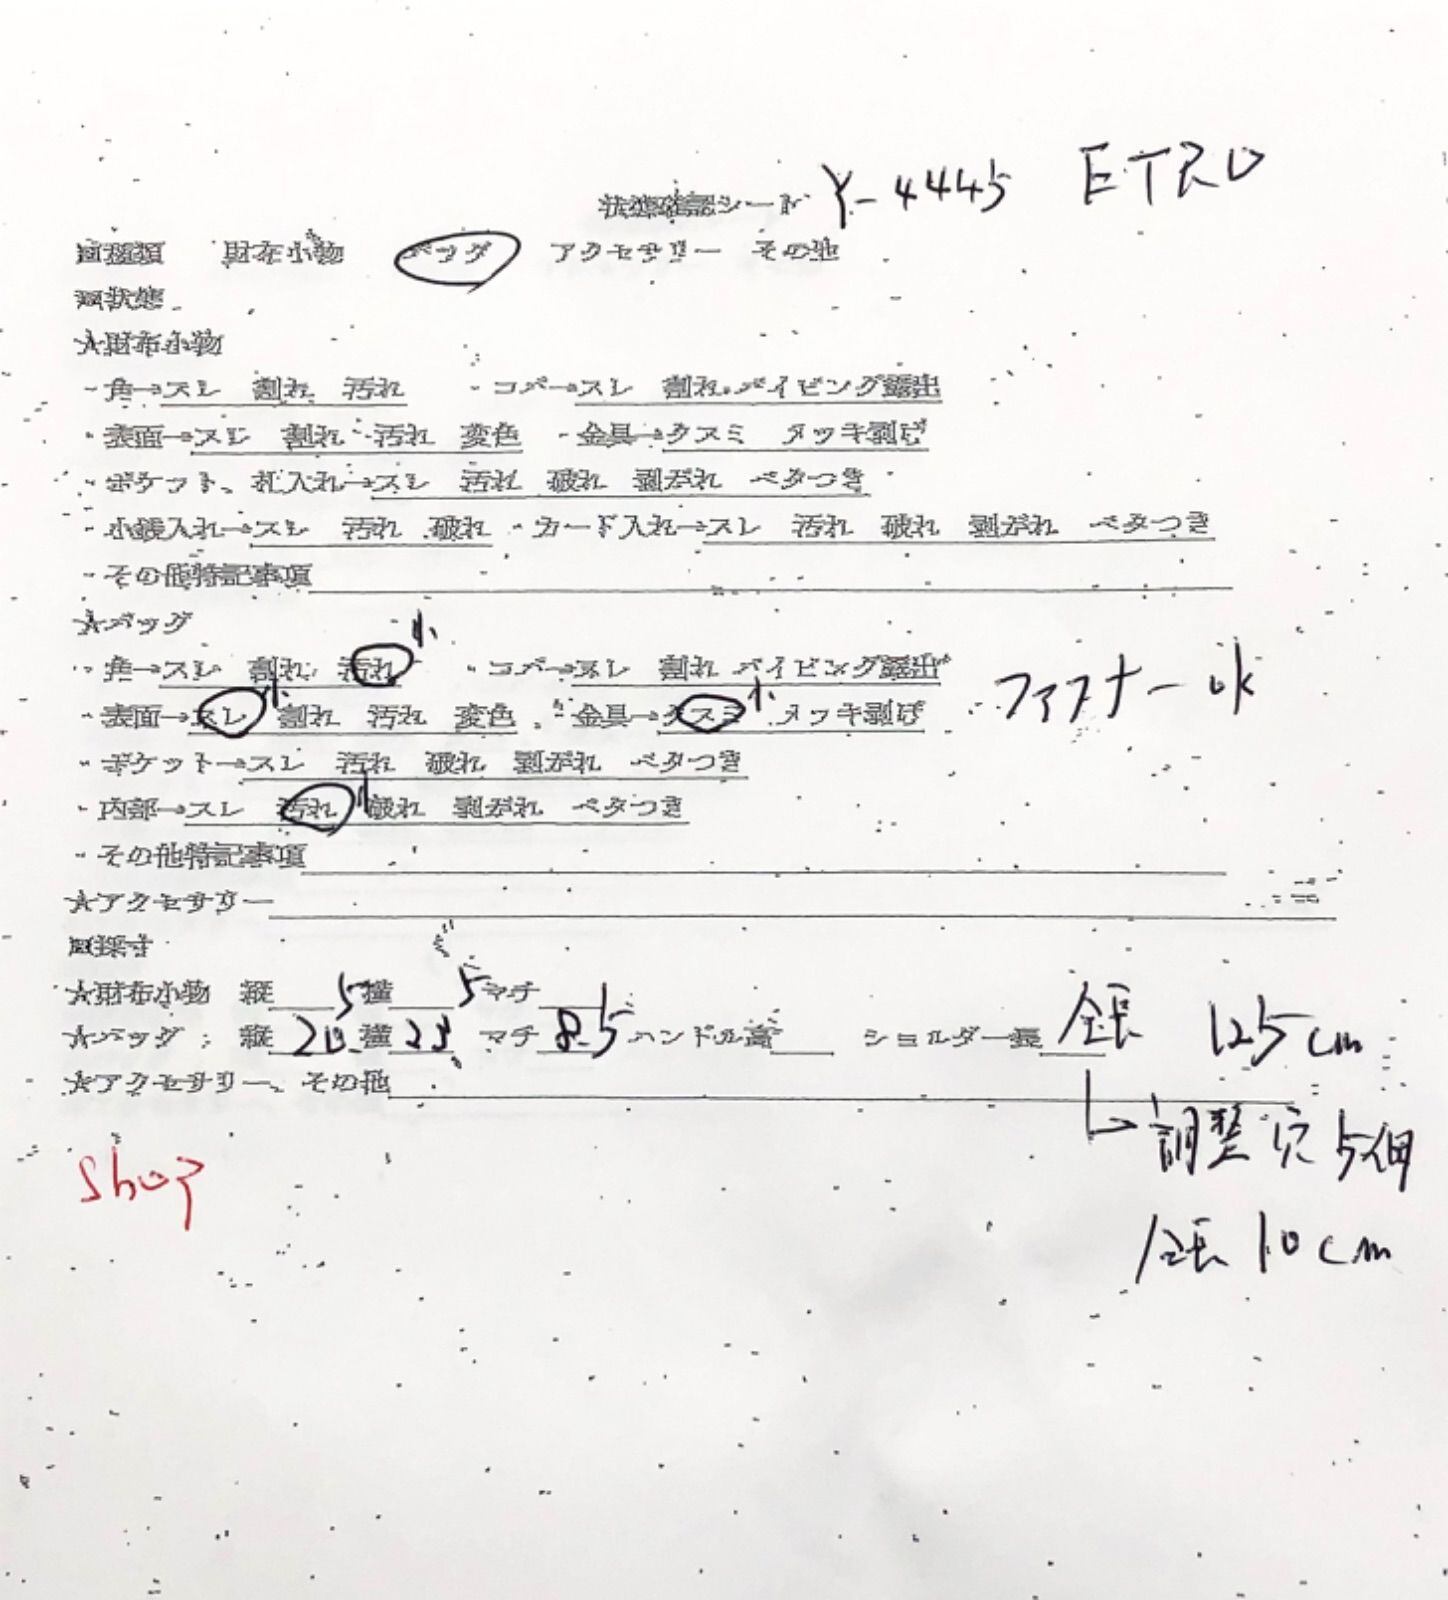 状態確認シート Y-4445 ETRO
■種類 財布小物 バッグ アクセサリー その他
■状態
★財布小物
・角→スレ 割れ 汚れ ・コバ→スレ 割れ パイピング露出
・表面→スレ 割れ 汚れ 変色 ・金具→クスミ メッキ剥げ
・ポケット、札入れ→スレ 汚れ 破れ 剥がれ ベタつき
・小銭入れ→スレ 汚れ 破れ ・カード入れ→スレ 汚れ 破れ 剥がれ ベタつき
・その他特記事項
★バッグ
・角→スレ 割れ 汚れ小 ・コバ→スレ 割れ パイピング露出
・表面→スレ小 割れ 汚れ 変色 ・金具→クスミ小 メッキ剥げ ファスナーok
・ポケット→スレ 汚れ 破れ 剥がれ ベタつき
・内部→スレ 汚れ小 破れ 剥がれ ベタつき
・その他特記事項
★アクセサリー
■採寸
★財布小物 縦 横 マチ
★バッグ 縦20.5横23.5マチ8.5ハンドル高 ショルダー長 全長 125cm
★アクセサリー、その他
↳調整穴5個
全長10cm
shop